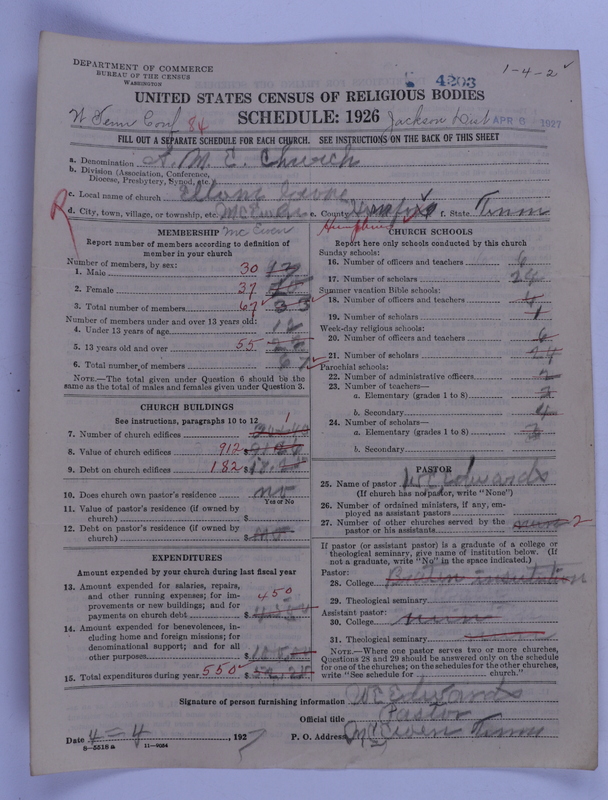 DEPARTMENT OF COMMERCE
BUREAU OF THE CENSUS
WASHINGTON
4203
1-4-2
UNITED STATES CENSUS OF RELIGIOUS BODIES
SCHEDULE: 1926
W Tenn Conf 84
Jackson Dist
APR 6 1927
FILL OUT A SEPARATE SCHEDULE FOR EACH CHURCH. SEE INSTRUCTIONS ON THE BACK OF THIS SHEET
a. Denomination A. M. E. Church
b. Division (Association, Conference, Diocese, Presbytery, Synod, etc.)
c. Local name of church
R
d. City, town, village, or township, etc. McEwen e. County f. State Tenn
McEwen
Humphreys
MEMBERSHIP
Report number of members according to definition of member in your church
Number of members, by sex:
1. Male 30
2. Female 37
3. Total number of members 67 33
Number of members under and over 13 years old:
4. Under 13 years of age 12
5. 13 years old and over 55
6. Total number of members 67
NOTE.—The total given under Question 6 should be the same as the total of males and females given under Question 3.
CHURCH BUILDINGS
See instructions, paragraphs 10 to 12
7. Number of church edifices 1
8. Value of church edifices $ 912
9. Debt on church edifices $ 182
10. Does church own pastor's residence no
Yes or No
11. Value of pastor's residence (if owned by church) $
12. Debt on pastor's residence (if owned by church) $ no
EXPENDITURES
Amount expended by your church during last fiscal year
13. Amount expended for salaries, repairs, and other running expenses; for improvements or new buildings; and for payments on church debt $ 450
14. Amount expended for benevolences, including home and foreign missions; for denominational support; and for all other purposes $
15. Total expenditures during year $ 550
CHURCH SCHOOLS
Report here only schools conducted by this church
Sunday schools:
16. Number of officers and teachers 6
17. Number of scholars 24
Summer vacation Bible schools:
18. Number of officers and teachers
19. Number of scholars
Week-day religious schools:
20. Number of officers and teachers 6
21. Number of scholars 24
Parochial schools:
22. Number of administrative officers 2
23. Number of teachers—
a. Elementary (grades 1 to 8)
b. Secondary 4
24. Number of scholars—
a. Elementary (grades 1 to 8)
b. Secondary
PASTOR
25. Name of pastor W C Edwards
(If church has no pastor, write "None")
26. Number of ordained ministers, if any, employed as assistant pastors
27. Number of other churches served by the pastor or his assistants 2
If pastor (or assistant pastor) is a graduate of a college or theological seminary, give name of institution below. (If not a graduate, write "No" in the space indicated.)
Pastor:
28. College
29. Theological seminary
Assistant pastor:
30. College
31. Theological seminary
NOTE.—Where one pastor serves two or more churches, Questions 28 and 29 should be answered only on the schedule for one of the churches; on the schedules for the other churches, write "See schedule for church."
Signature of person furnishing information W C Edwards
Official title Pastor
Date 4-4, 1927 P. O. Address McEwen Tenn
8-5518 a 11-9064